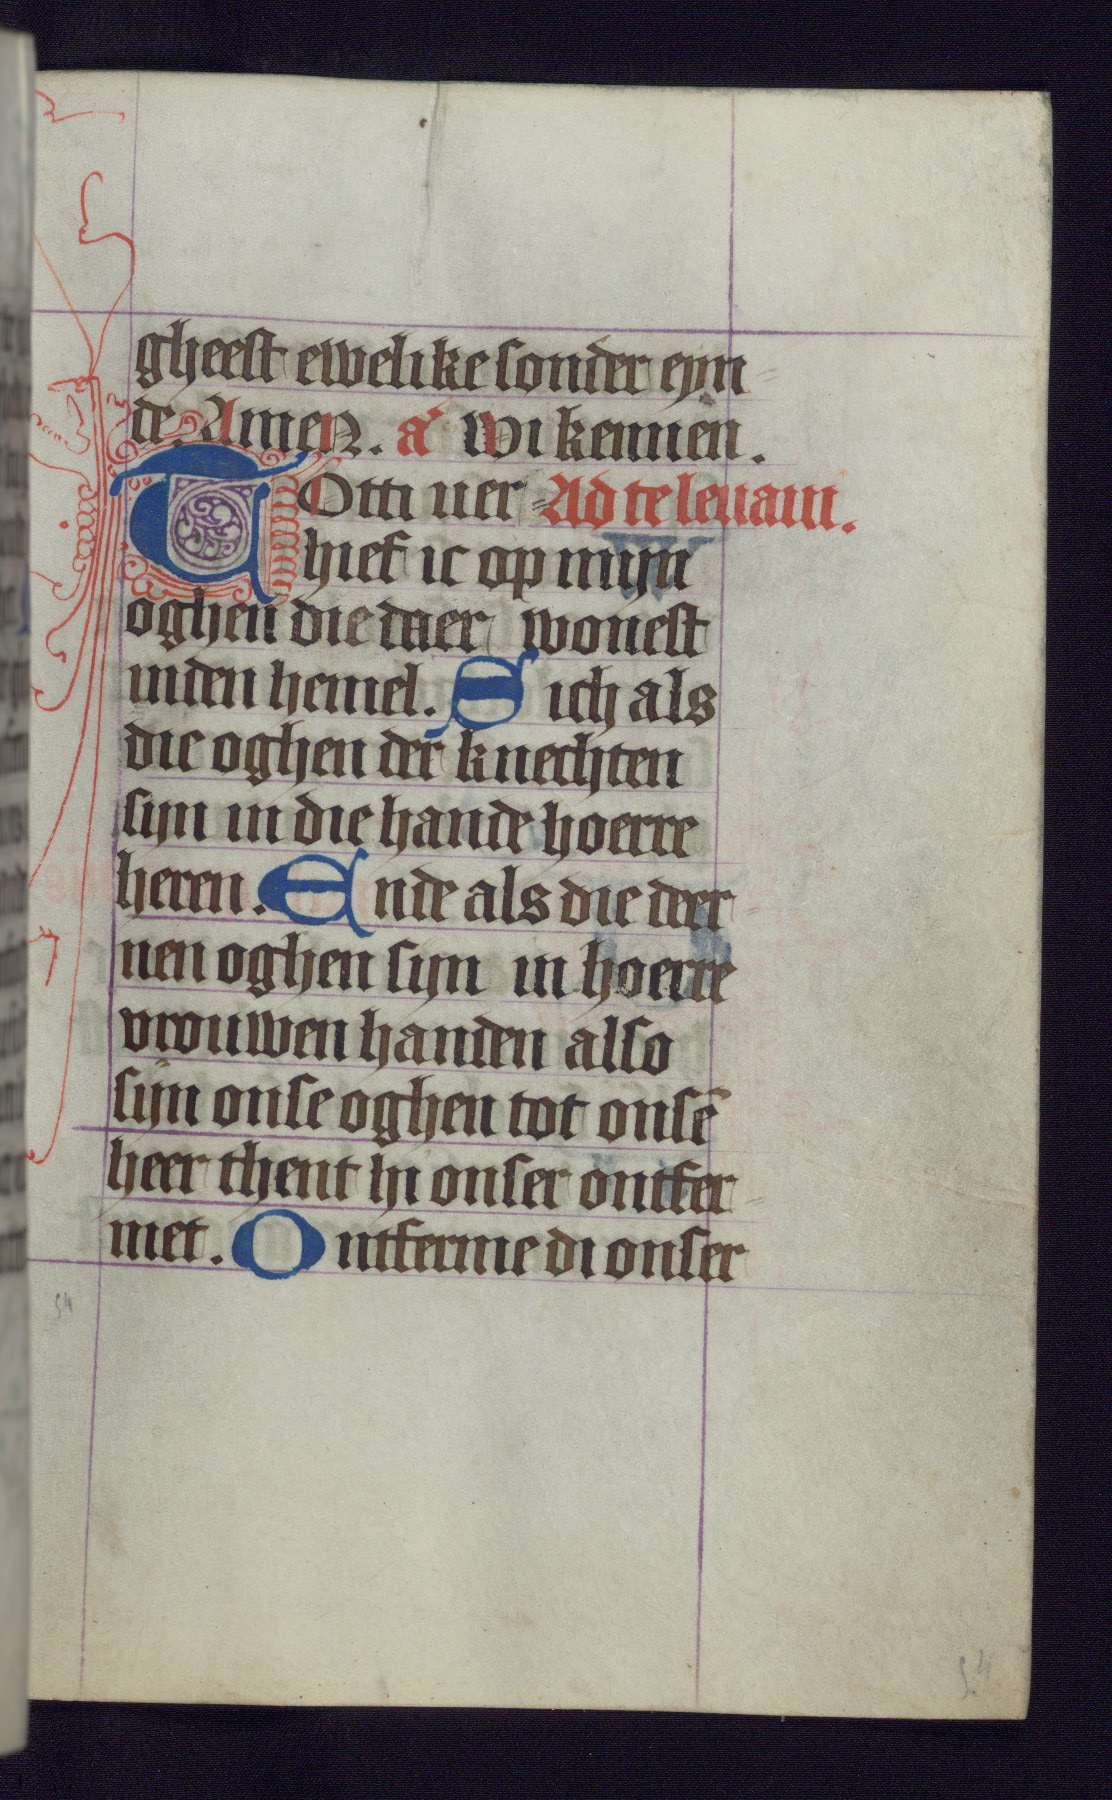 gheest ewelike sonder eyn
de. Amen. a᷒ wi kennen.
TOtti uer Ad te leuaui.
hief ic op mijn
oghen die daer wonest
inden hemel. Sich als
die oghen der knechten
sijn in die hande hoerre
heren. Ende als die deer
nen oghen sijn in hoerre
vrouwen handen also
sijn onse oghen tot onsē
heer thent hi onser ontfer
met. Ontferme di onser
54
54